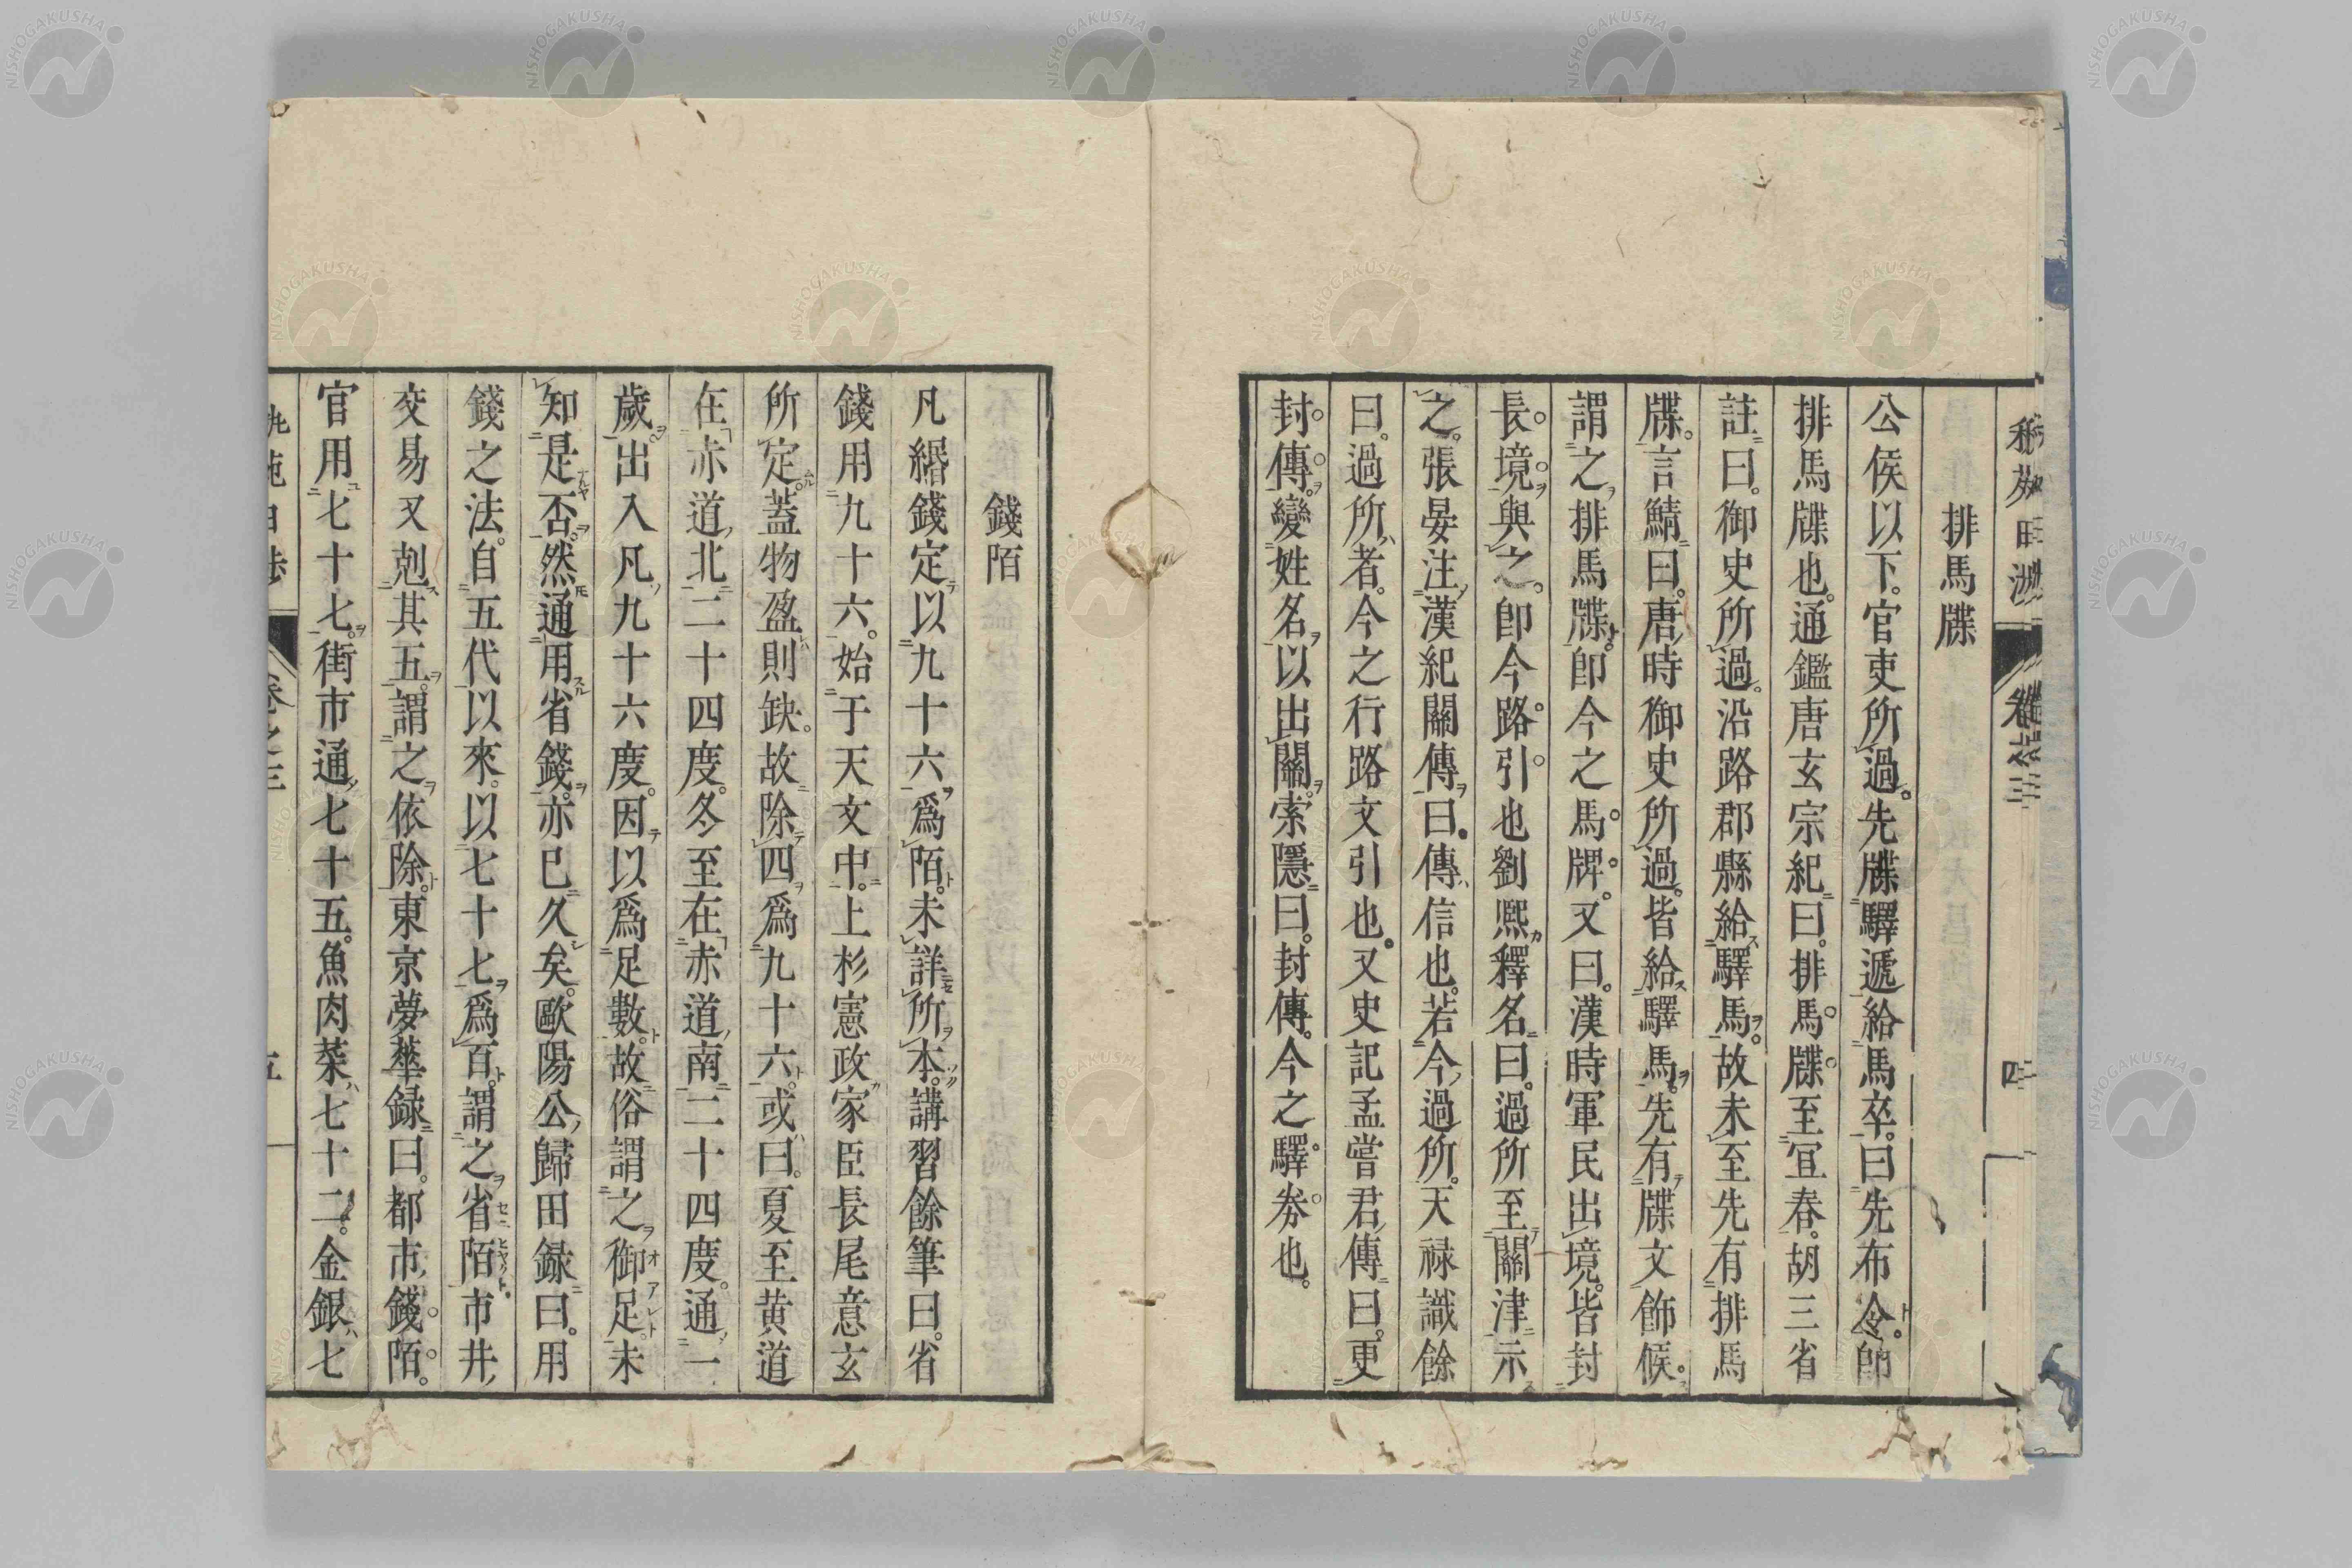 排馬牒
公侯以下。官吏所過。先牒驛遞給馬卒。曰先布令。卽
排馬牒也。通鑑唐玄宗紀曰。排馬牒至宜春。胡三省
註曰。御史所過。沿路郡縣給驛馬。故未至先有排馬
牒。言鯖曰。唐時御史所過。皆給驛馬。先有牒文飾候。
謂之排馬牒。卽今之馬牌。又曰。漢時軍民出境。皆封
長境與之。卽今路引也劉熙釋名曰。過所至關津示
之。張晏注漢紀關傳曰。傳信也。若今過所。天禄識餘
曰。過所者。今之行路文引也。又史記孟嘗君傳曰。更
封傳。變姓名以出關。索隱曰。封傳。今之驛券也。
錢陌
凡緡錢定以九十六爲陌。未詳所本。講習餘筆曰。省
錢用九十六。始于天文中。上杉憲政家臣長尾意玄
所定。蓋物盈則缺。故除四爲九十六。或曰。夏至黄道
在赤道北二十四度。冬至在赤道南二十四度。通一
歲。出入凡九十六度。因以爲足數。故俗謂之御足。未
知是否。然通用省錢。亦已久矣。歐陽公歸田録曰。用
錢之法。自五代以來。以七十七爲百。謂之省陌。市井
交易又剋其五。謂之依除。東京夢華録曰。都市錢陌。
官用七十七。街市通七十五。魚肉菜七十二。金銀七
NISHOGAKUSHA